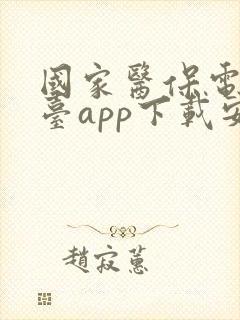 國家醫保電
臺app下載安
趙寂蕙